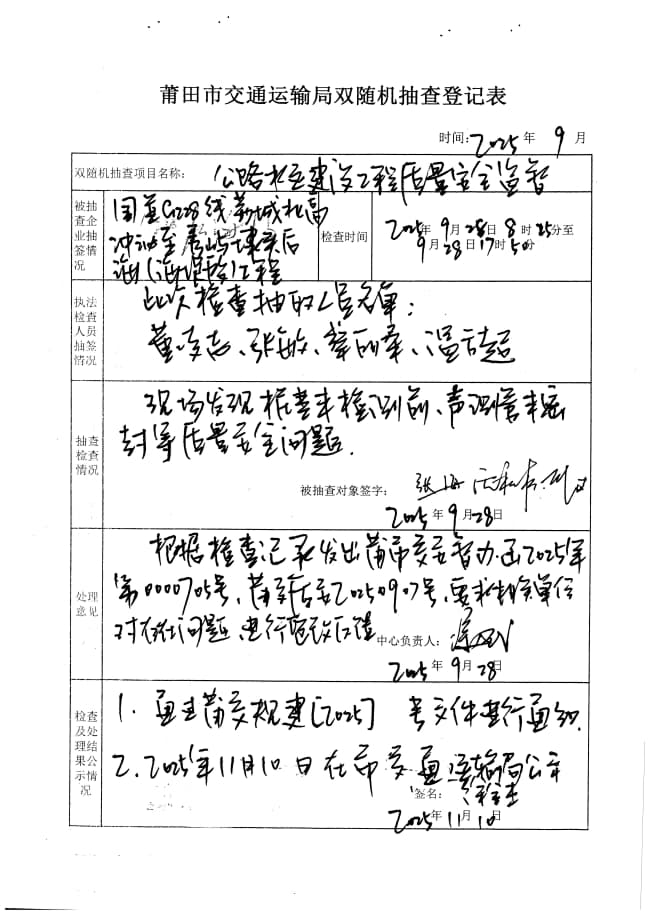 莆田市交通运输局双随机抽查登记表
时间：2025年9月
双随机抽查项目名称：公路水运建设工程质量安全监督
被抽查企业抽签情况
国道G228线荔城北高
冲沁至秀屿埭头后
海(海堤段)工程
检查时间
2025年9月28日8时25分至
9月28日17时50分
执法检查人员抽签情况
此次检查抽取人员名单：
抽查检查情况
现场发现桩基未检测前、声测管未密
封等质量安全问题.
被抽查对象签字：
2025年9月28日
处理意见
根据检查记录发出莆市交安督办函2025年
第0000705号、莆交质安20250907号,要求相关单位
对存在问题进行整改反馈
中心负责人：
2025年9月28日
检查及处理结果公示情况
1.通过莆交规建[2025] 号文件进行通知.
2.2025年11月10日在市交通运输局公示
签名：
2025年11月10日